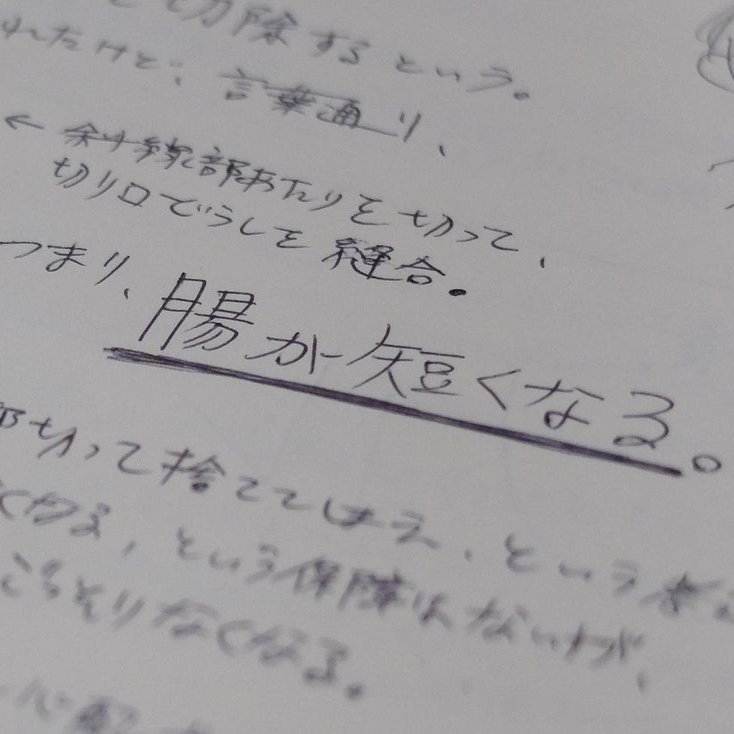 切除するという。
れたけど、言葉通り、
← 余分な部分あたりを切って、
切り口どうしを縫合。
つまり、腸が短くなる。
切って捨ててしまえ、という
なくなる、という保障はないが、
ごっそりなくなる。
心配